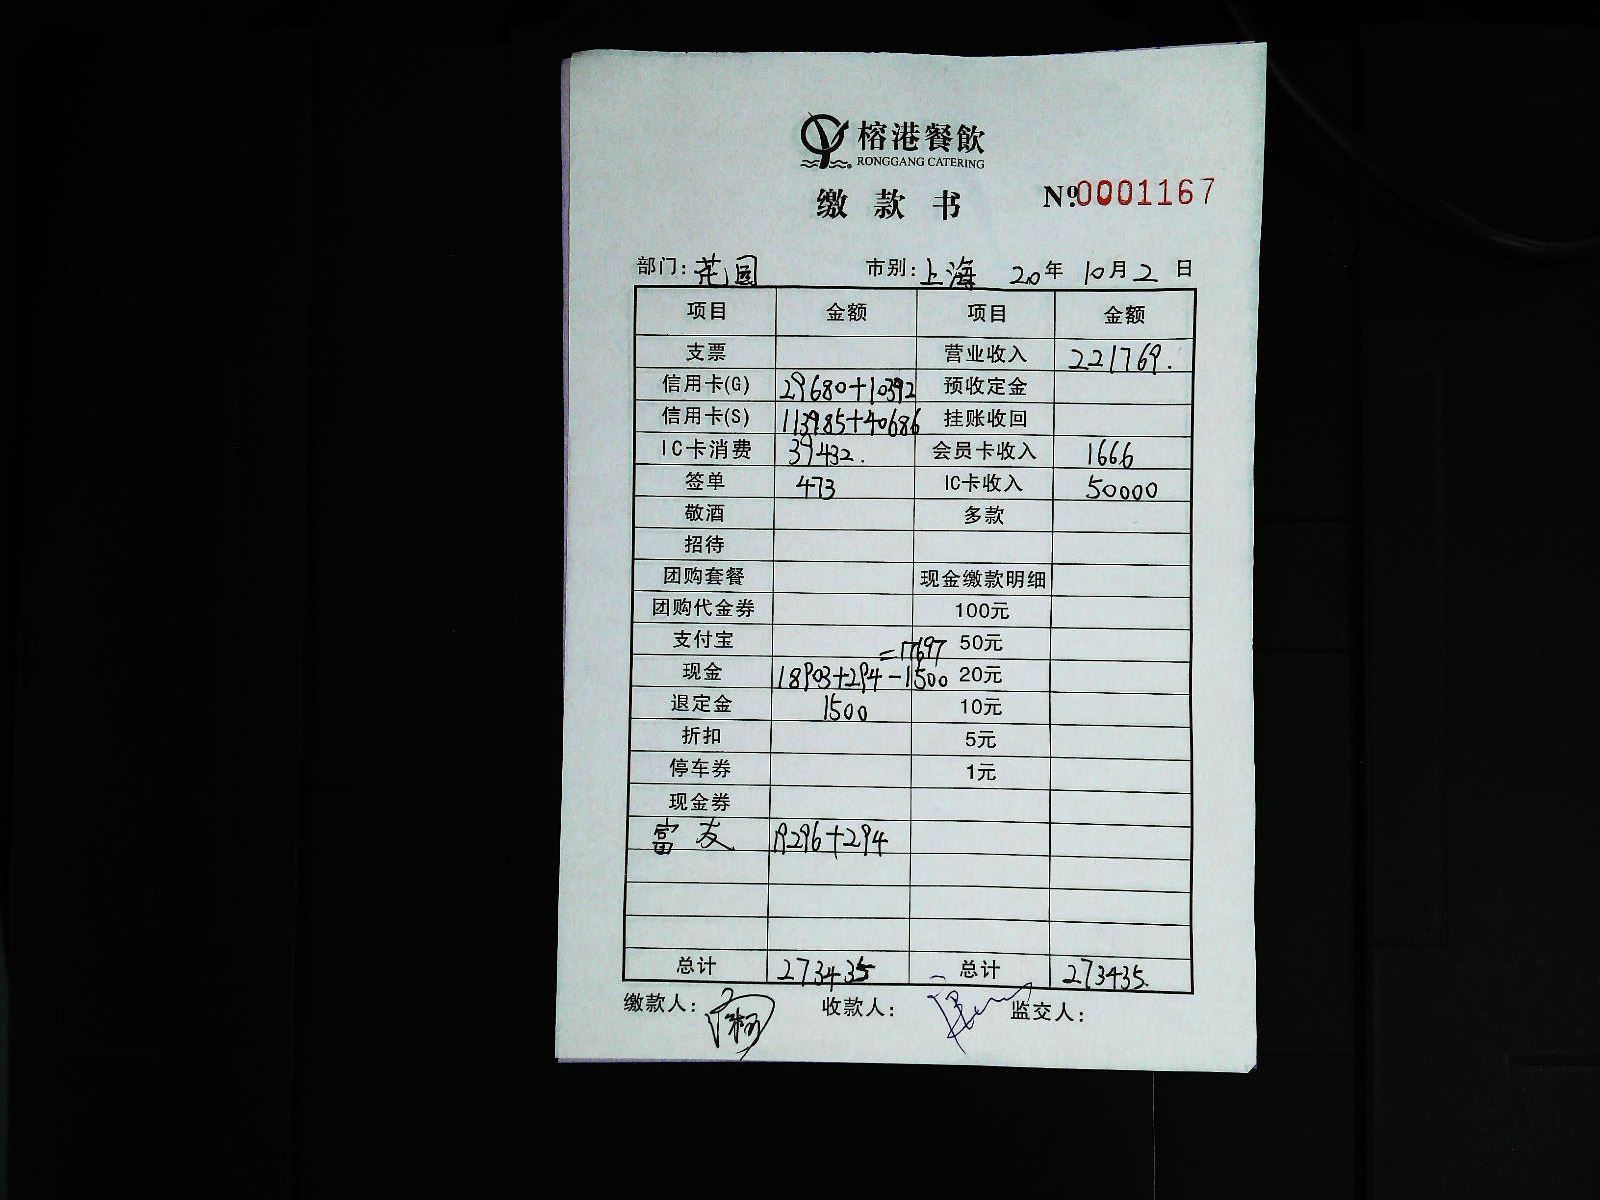 榕港餐飲
RONGGANG CATERING
缴款书 Nº.0001167
部门: 花园 市别: 上海 20年 10月 2日
项目 金额 项目 金额
支票 营业收入 221769.
信用卡(G) 29680+10392 预收定金
信用卡(S) 113985+40686 挂账收回
IC卡消费 39432. 会员卡收入 1666
签单 473 IC卡收入 50000
敬酒 多款
招待
团购套餐 现金缴款明细
团购代金券 100元
支付宝 =17697 50元
现金 18903+294-1500 20元
退定金 1500 10元
折扣 5元
停车券 1元
现金券
富友 19296+294
总计 273435 总计 273435.
缴款人: 收款人: 监交人: